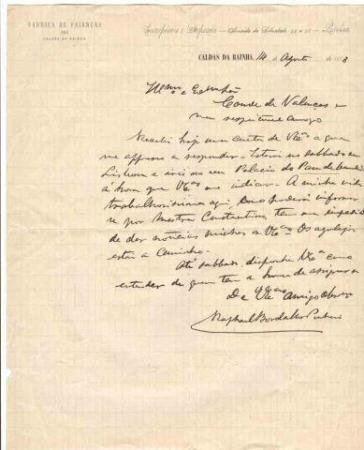 FABRICA DE FAIANÇAS
DAS
CALDAS DA RAINHA
Escriptorio e Deposito — Avenida da Liberdade — Lisboa
CALDAS DA RAINHA, 14 de Agosto de 188
Conde de Valenças
meu amigo
Recebi hoje sua carta de V.Exª a que
me apresso a responder. Estarei no sabbado em
Lisboa e irei no seu Palacio do
a hora que V.Exª me indicar. A minha vida
aqui, como poderá informar
Mestre Constantino, tem me impedido
de dar noticias minhas a V.Exª. Os azulejos
estão a caminho.
Até sabbado, disponha V.Exª como
entender de quem tem a honra de assignar-se
De V.Exª amigo obrgº
Raphael Bordallo Pinheiro